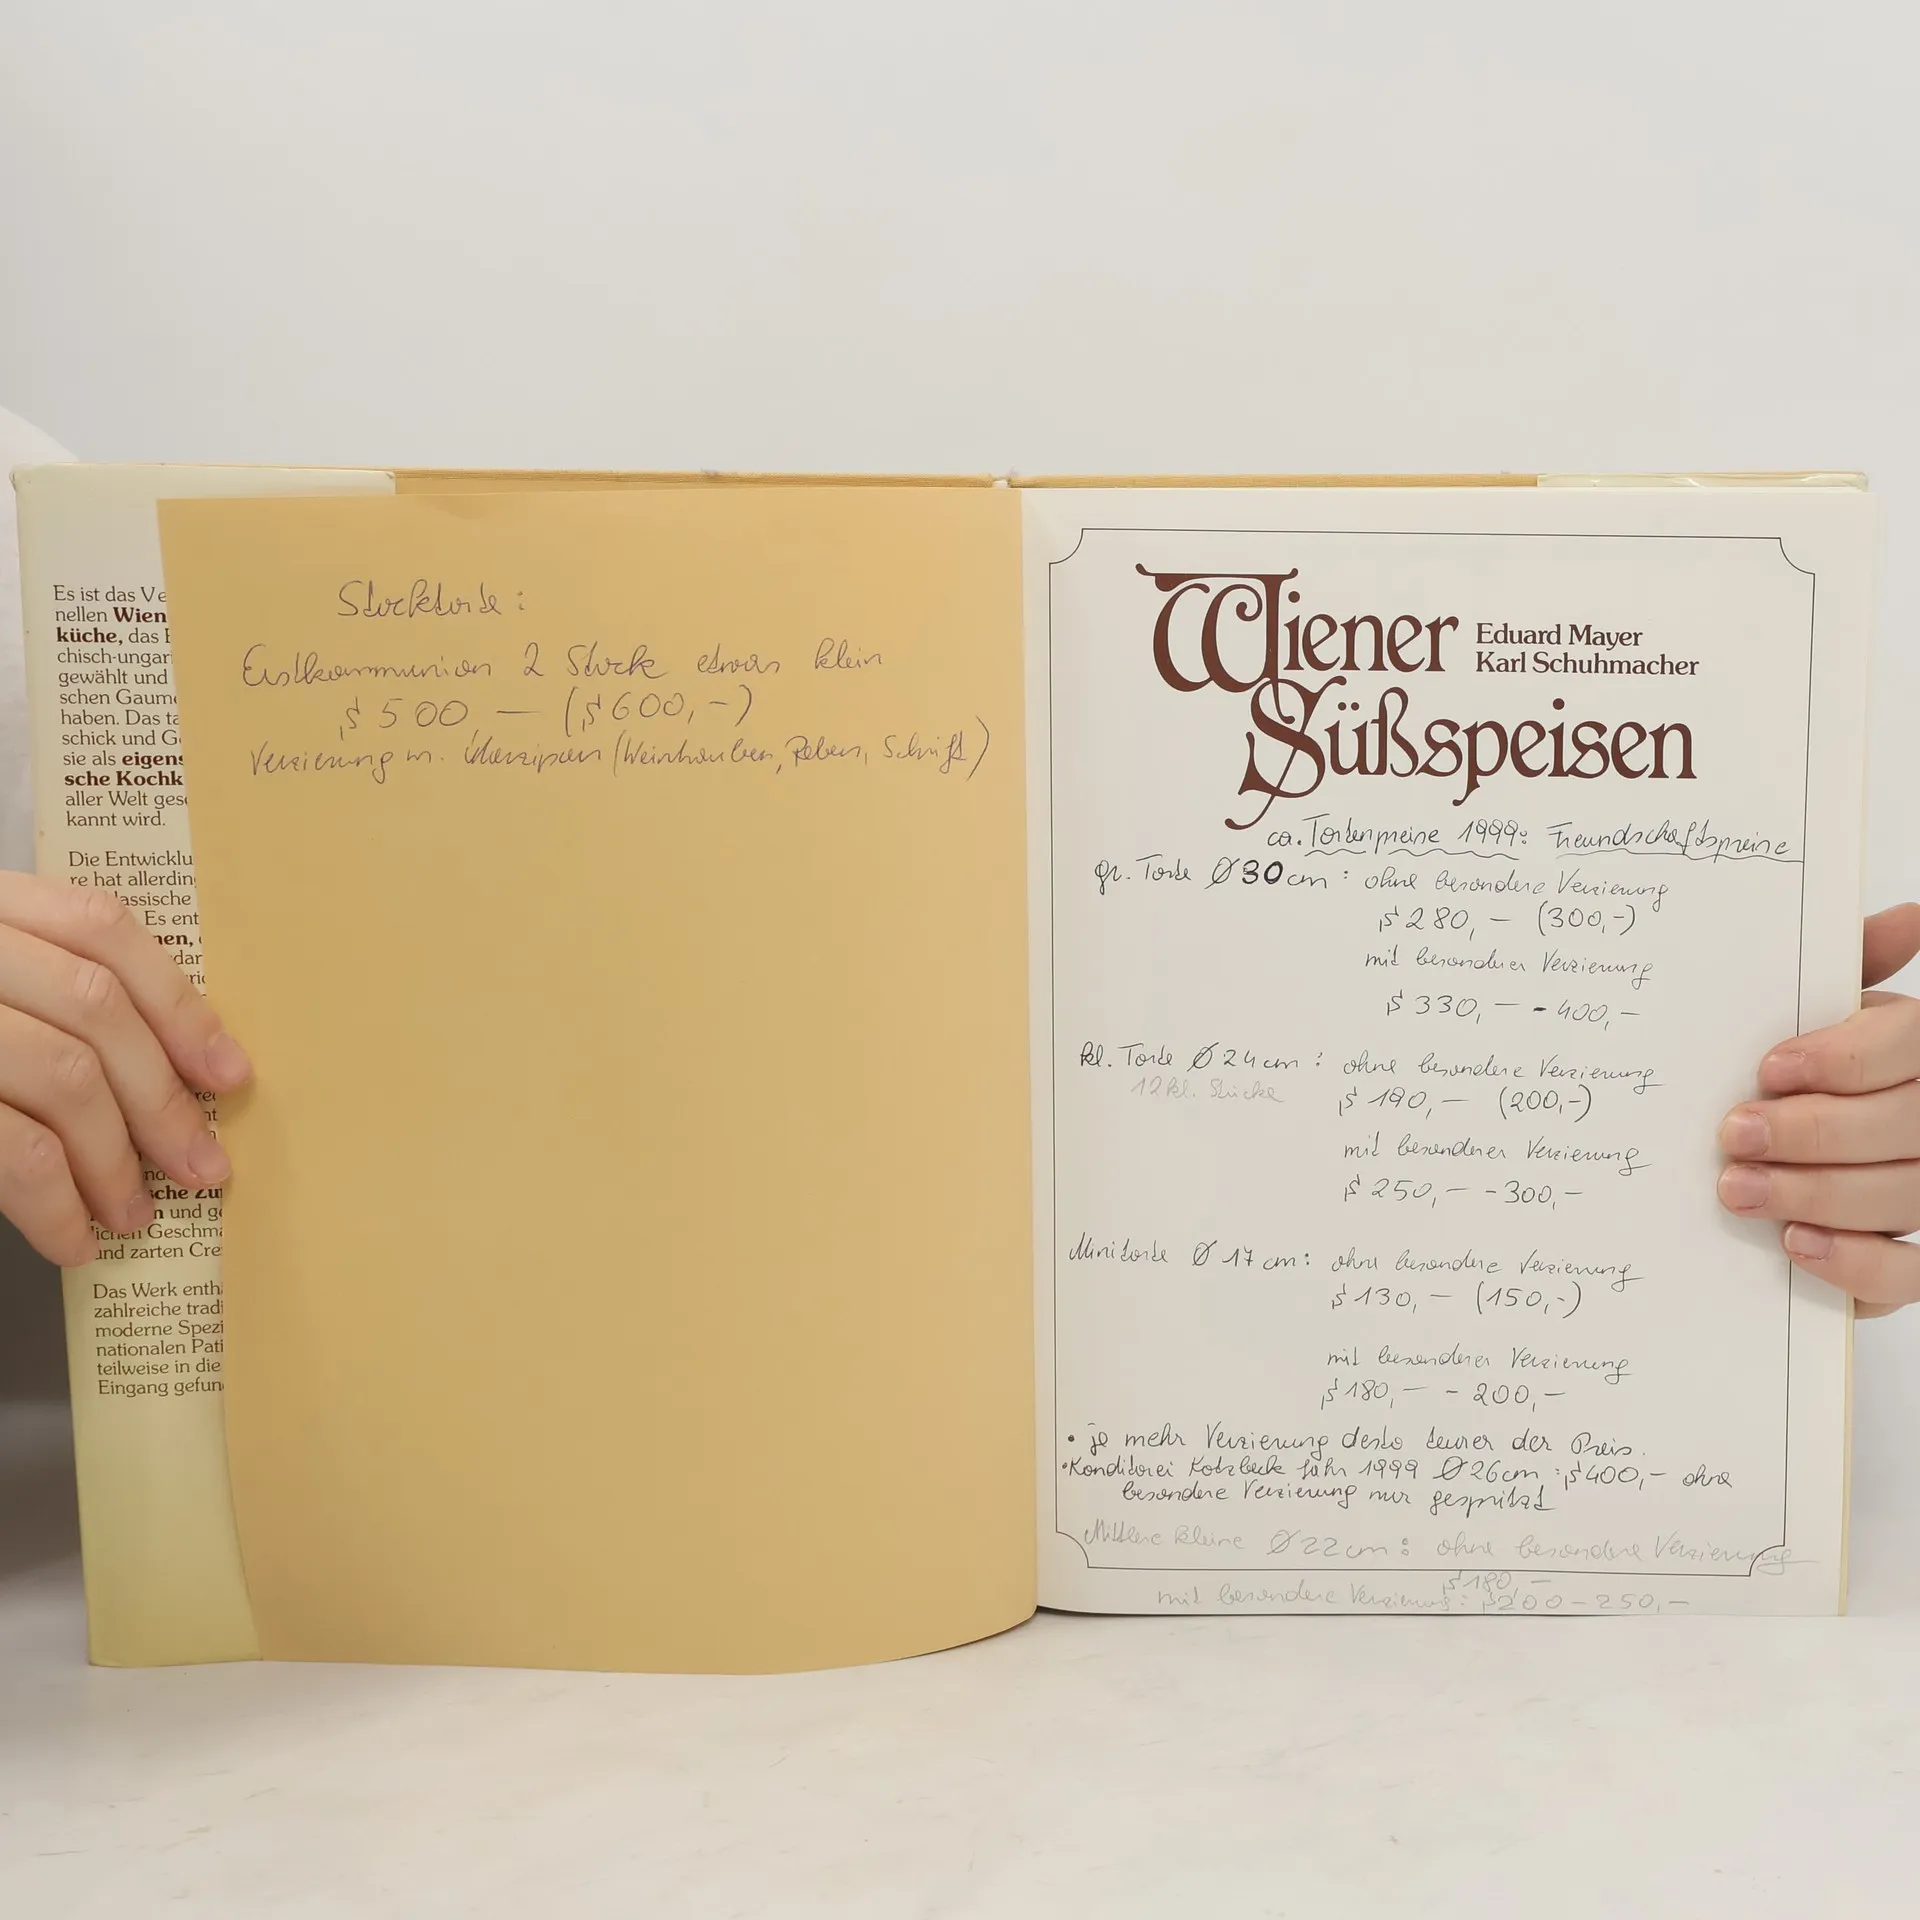 Es ist das Ve
nellen Wien
küche, das
chisch-ungari
gewählt und
schen Gaum
haben. Das ta
schick und G
sie als eigens
sche Kochk
aller Welt ges
kannt wird.
Die Entwicklu
re hat allerdin
lassische
Es ent
nen,
dar
sche Zu
n und ge
lichen Geschma
und zarten Cre
Das Werk enth
zahlreiche tradi
moderne Spezi
nationalen Pati
teilweise in die
Eingang gefun
Stocktorte:
Erstkommunion 2 Stock etwas klein
S 500 — (S 600,-)
Verzierung m. Marzipan (Weintrauben, Reben, Schrift)
Wiener
Eduard Mayer
Karl Schuhmacher
Süßspeisen
ca. Tortenpreise 1999: Freundschaftspreise
gr. Torte Ø 30 cm: ohne besondere Verzierung
S 280,— (300,-)
mit besonderer Verzierung
S 330,— - 400,—
kl. Torte Ø 24 cm: ohne besondere Verzierung
12 kl. Stücke S 190,— (200,-)
mit besonderer Verzierung
S 250,— - 300,—
Minitorte Ø 17 cm: ohne besondere Verzierung
S 130,— (150,-)
mit besonderer Verzierung
S 180,— - 200,—
• je mehr Verzierung desto teurer der Preis.
• Konditorei Kotzbeck Jahr 1999 Ø 26 cm: S 400,— ohne
besondere Verzierung nur gespritzt
Mittlere kleine Ø 22 cm: ohne besondere Verzierung
S 180,—
mit besondere Verzierung: S 200 - 250,—